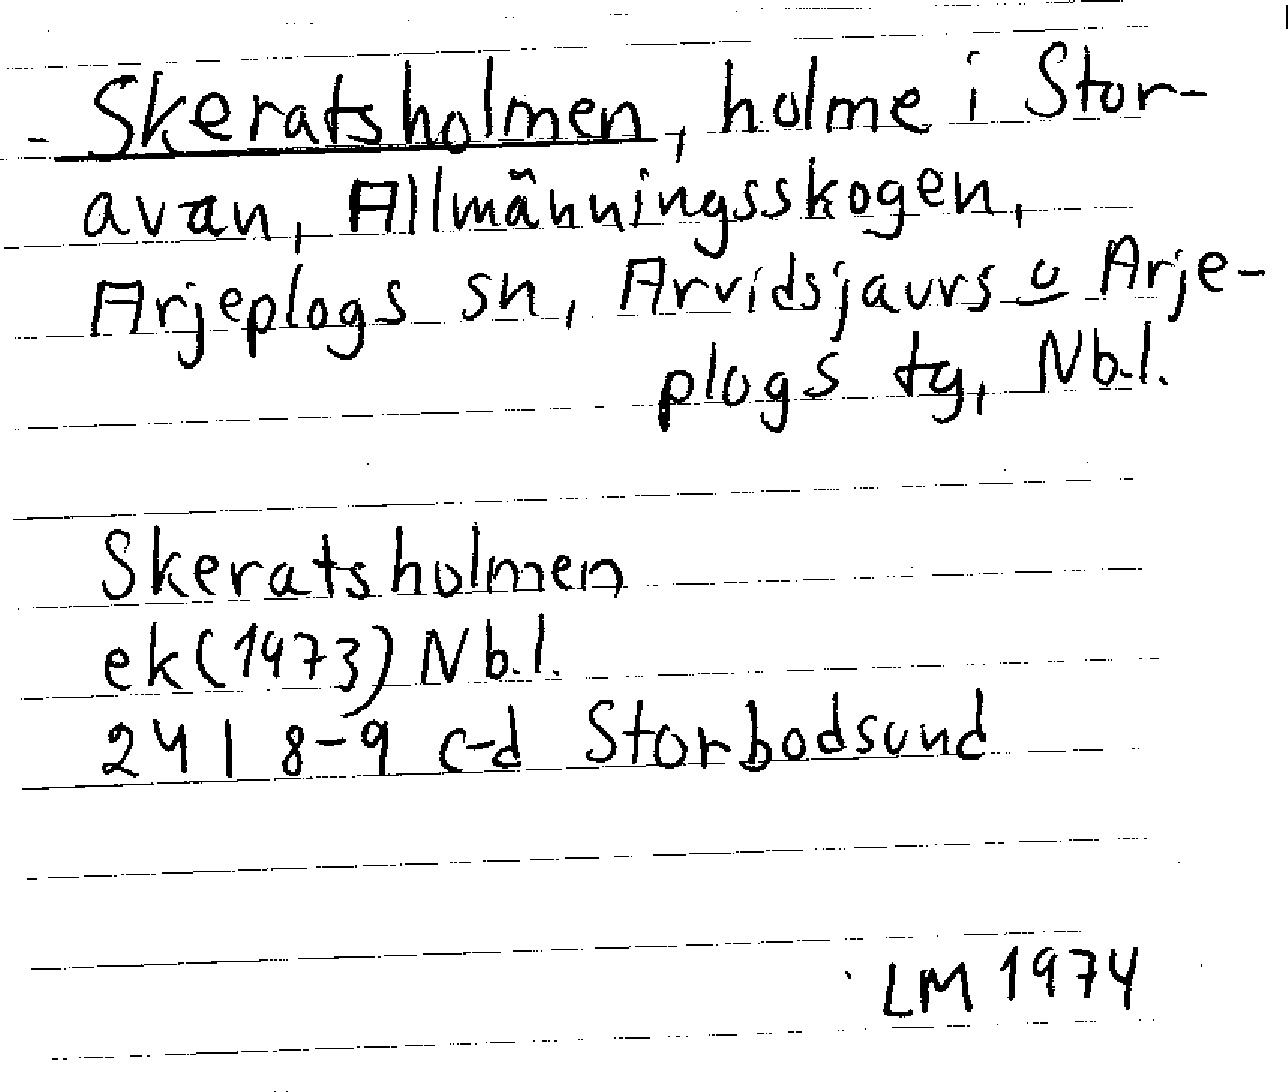 Skeratsholmen, holme i Stor-
avan, Allmänningsskogen,
Arjeplogs sn, Arvidsjaurs o Arje-
plogs tg, Nb.l.
Skeratsholmen
ek (1973) Nb.l.
24 I 8-9 c-d Storbodsund
LM 1974